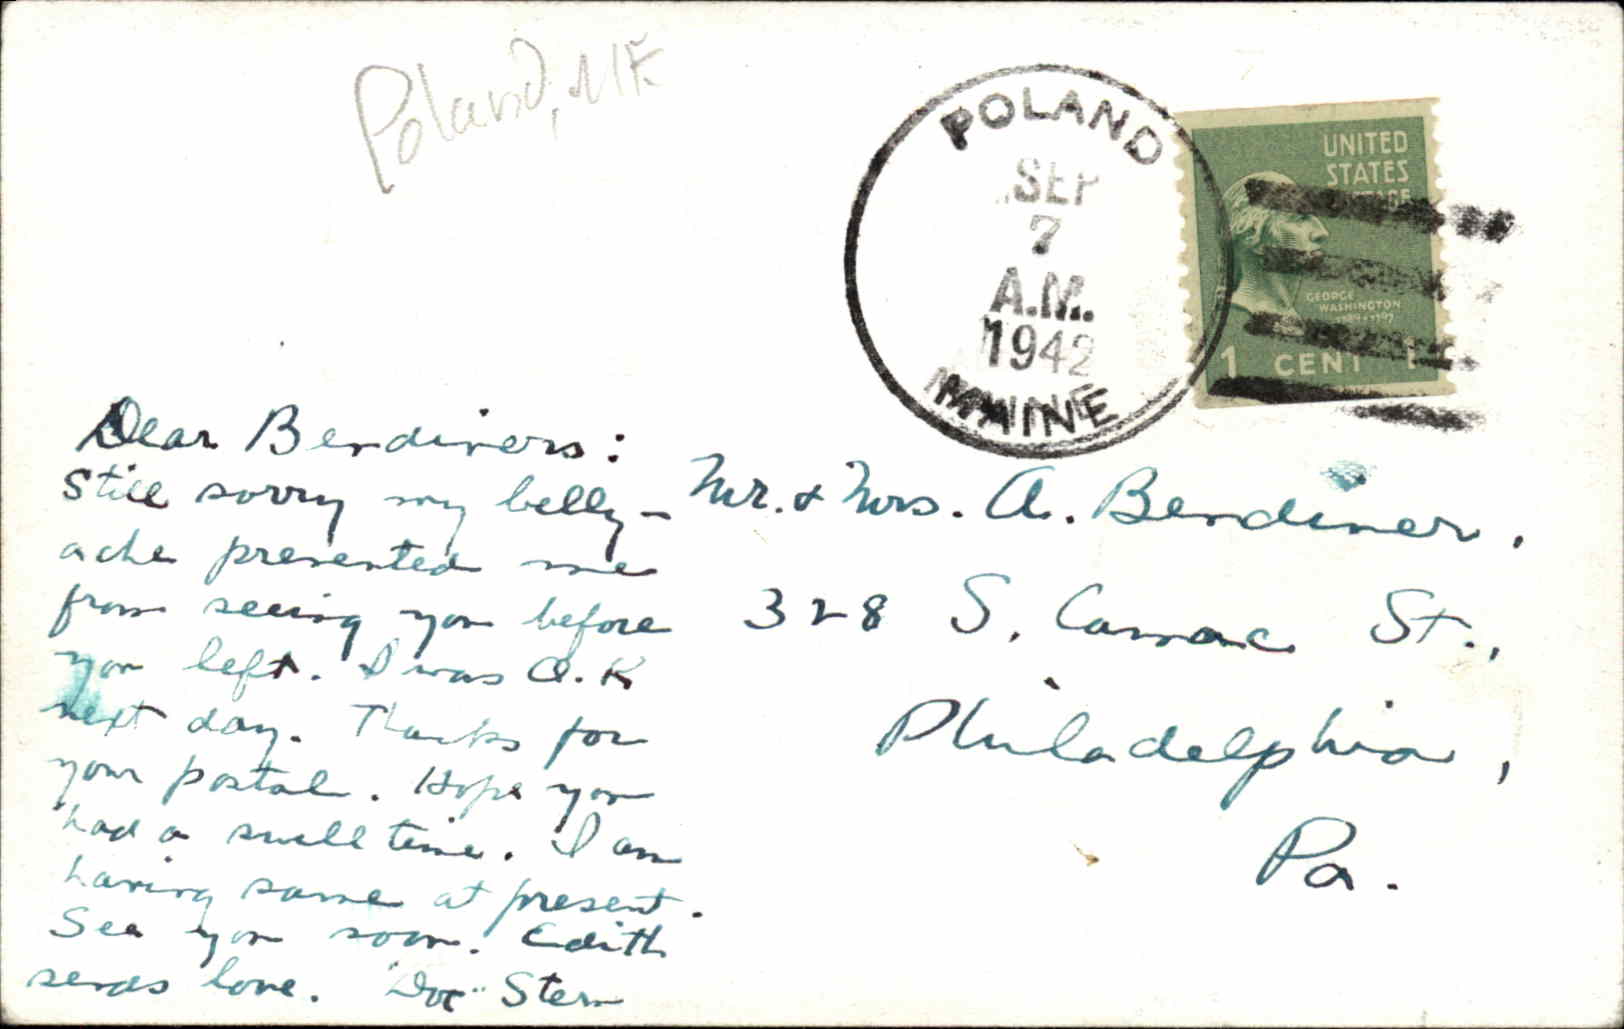 Poland, ME
POLAND
SEP
7
A.M.
1942
MAINE
UNITED
STATES
POSTAGE
GEORGE
WASHINGTON
1789-1797
1 CENT 1
Dear Bendiners:
Still sorry my belly-
ache prevented me
from seeing you before
you left. I was O.K
next day. Thanks for
your postal. Hope you
had a swell time. I am
having same at present.
See you soon. Edith
sends love. "Doc" Stern
Mr. & Mrs. A. Bendiner,
328 S. Camac St.,
Philadelphia,
Pa.